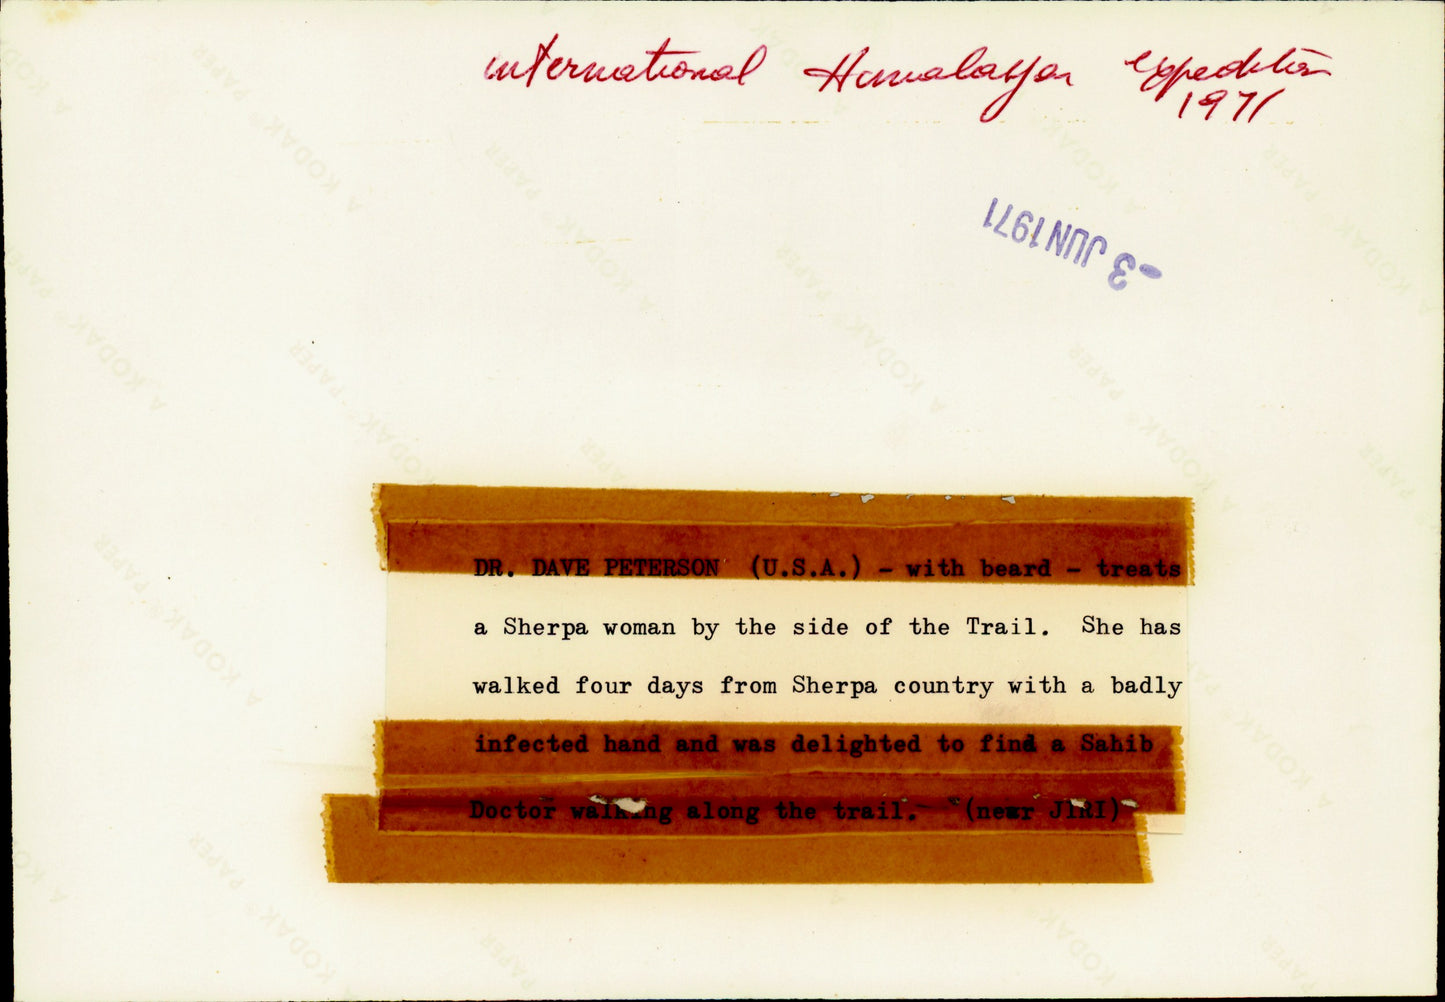 international Himalayan Expedition
1971
-3 JUN 1971
DR. DAVE PETERSON (U.S.A.) - with beard - treats
a Sherpa woman by the side of the Trail. She has
walked four days from Sherpa country with a badly
infected hand and was delighted to find a Sahib
Doctor walking along the trail. (near JIRI)
A KODAK® PAPER